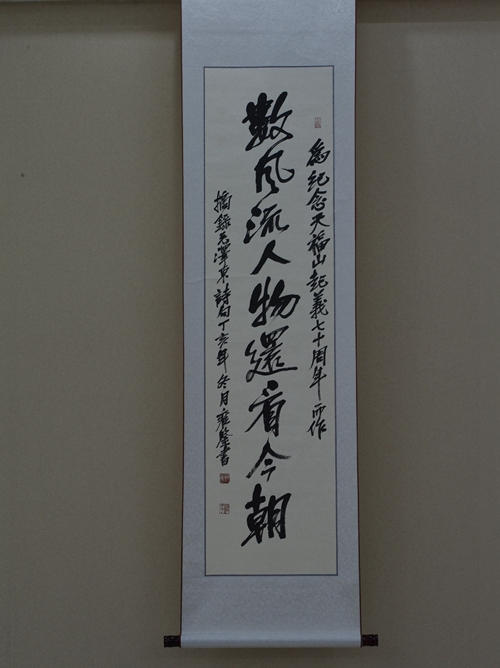 為紀念天福山起義七十周年而作
數风流人物還看今朝
摘錄毛澤東詩句丁亥年冬月雍鑒書